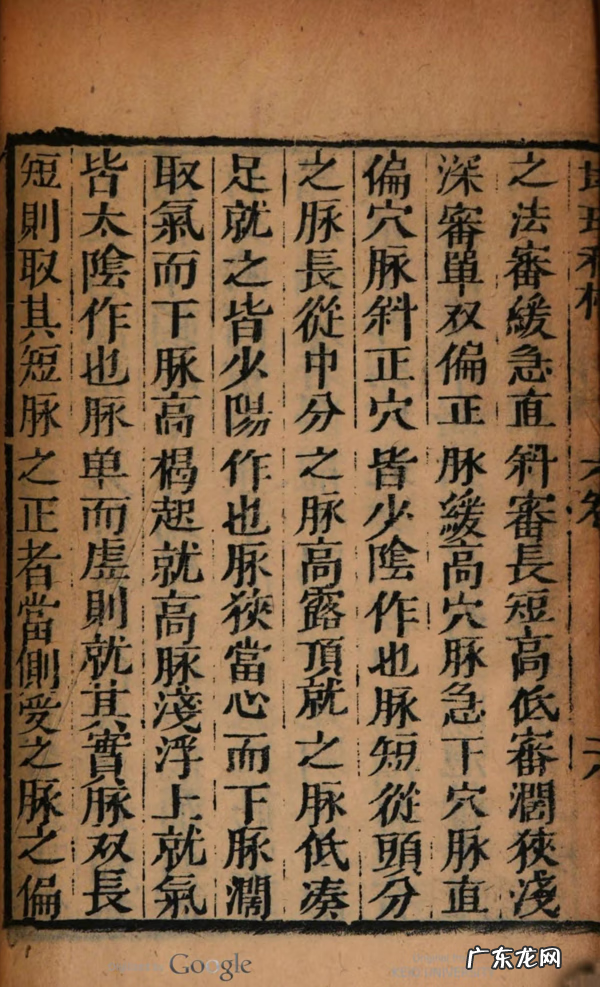 之法審緩急直斜審長短高低審濶狹淺
深審單双偏正脉緩高穴脉急下穴脉直
偏穴脉斜正穴皆少陰作也脉短從頭分
之脉長從中分之脉高露頂就之脉低凑
足就之皆少陽作也脉狹當心而下脉濶
取氣而下脉高楬起就高脉淺浮上就氣
皆太陰作也脉单而虛則就其實脉双長
短則取其短脉之正者當側受之脉之偏
Google
广东龙网